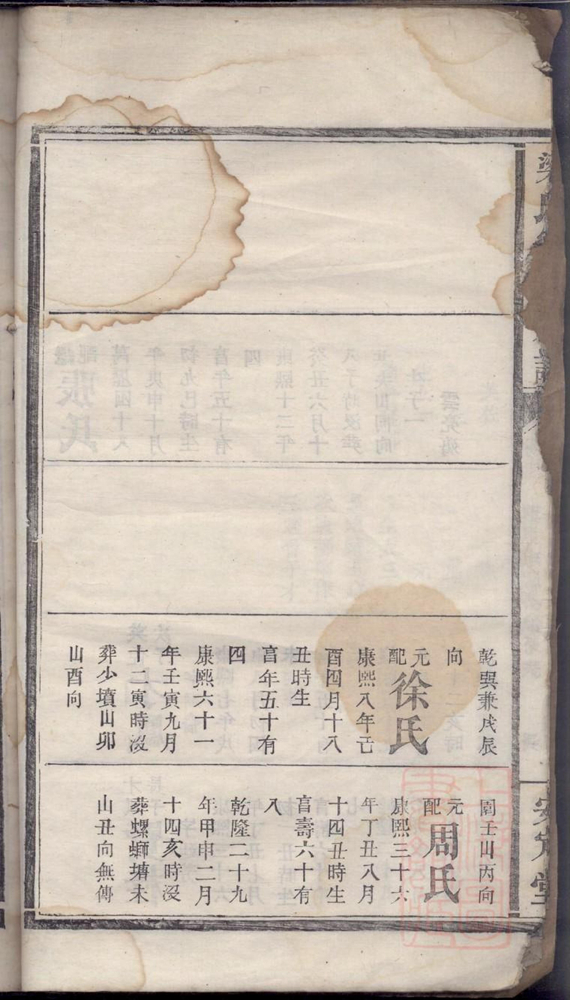 乾巽兼戌辰
向
元配徐氏
康熙八年己
酉四月十八
丑時生
享年五十有
四
康熙六十一
年壬寅九月
十二寅時歿
葬少墳山卯
山酉向
園壬山丙向
元配周氏
康熙三十六
年丁丑八月
十四丑時生
享壽六十有
八
乾隆二十九
年甲申二月
十四亥時歿
葬螺螄塘未
山丑向無傳
安定堂